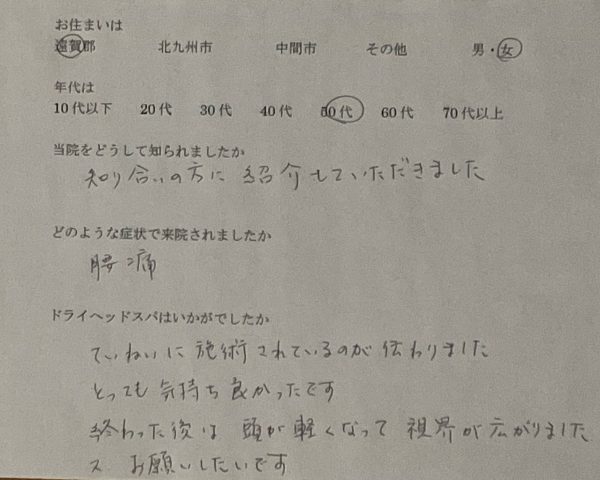 お住まいは
遠賀郡 北九州市 中間市 その他 男・女
年代は
10代以下 20代 30代 40代 50代 60代 70代以上
当院をどうして知られましたか
知り合いの方に紹介していただきました
どのような症状で来院されましたか
腰痛
ドライヘッドスパはいかがでしたか
ていねいに施術されているのが伝わりました
とっても気持ち良かったです
終わった後は頭が軽くなって視界が広がりました
又お願いしたいです